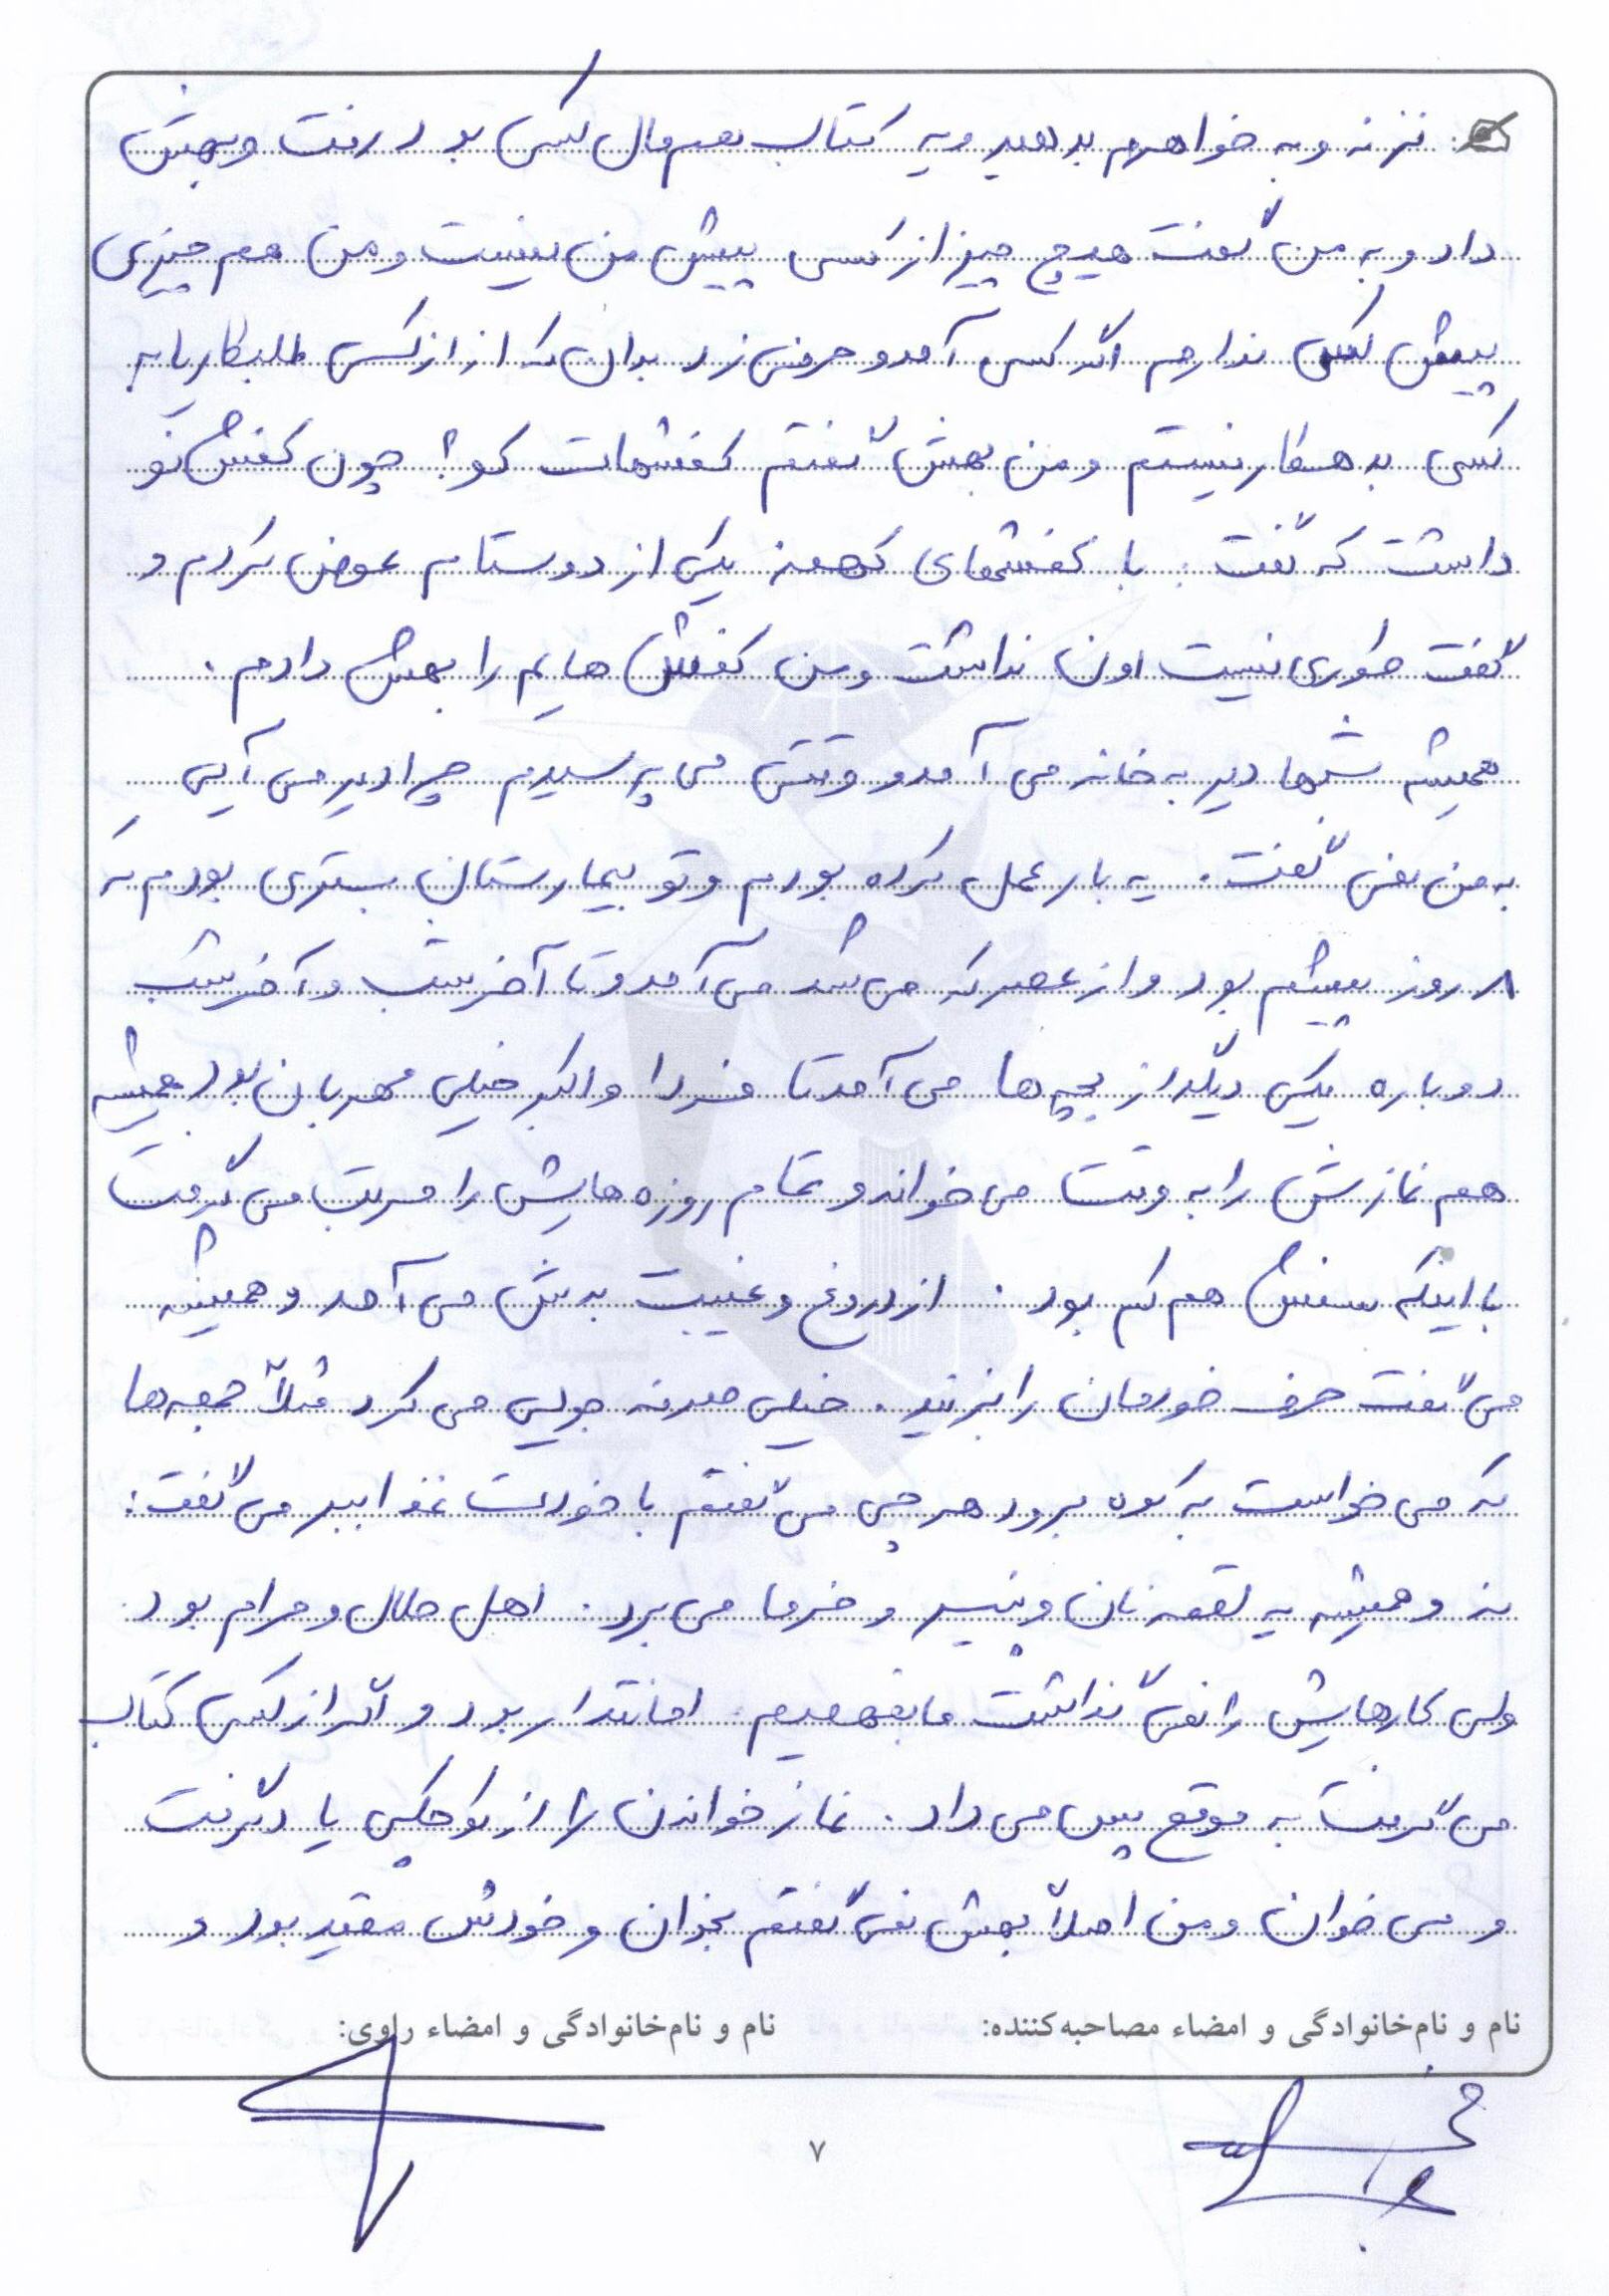 نزنه و به خواهرم بدهید و یه کتاب هم مال کسی بود رفت و بهش
داد و به من گفت هیچ چیز از کسی پیش من نیست و من هم چیزی
پیش کسی ندارم اگر کسی آمد و حرفی زد بدان که از از کسی طلبکار یا به
کسی بدهکار نیستم و من بهش گفتم کفشهات کو؟ چون کفش نو
داشت که گفت: با کفشهای کهنه یکی از دوستام عوض کردم و
گفت طوری نیست اون نداشت و من کفش هایم را بهش دادم.
همیشه شبها دیر به خانه می آمد و وقتی می پرسیدم چرا دیر می آیی
به من نمی گفت. یه بار عمل کرده بودم و تو بیمارستان بستری بودم که
۸ روز پیشم بود و از عصر که می شد می آمد و تا آخر شب و آخر شب
دوباره یکی دیگر از بچه ها می آمد تا فردا و اکبر خیلی مهربان بود همیشه
هم نمازش را به وقت می خواند و تمام روزه هایش را مرتب می گرفت
با اینکه سنش هم کم بود. از دروغ و غیبت بدش می آمد و همیشه
می گفت حرف خودمان را بزنید. خیلی صرفه جویی می کرد مثلاً جمعه ها
که می خواست به کوه برود هر چی می گفتم با خودت غذا ببر می گفت:
نه و همیشه یه لقمه نان و پنیر و خرما می برد. اهل حلال و حرام بود
ولی کارهایش را نمی گذاشت ما بفهمیم. امانتدار بود و اگر از کسی کتاب
می گرفت به موقع پس می داد. نماز خواندن را از کوچکی یاد گرفت
و می خوان و من اصلاً بهش نمی گفتم بخوان و خودش مقید بود و
نام و نام‌خانوادگی و امضاء مصاحبه‌کننده: نام و نام‌خانوادگی و امضاء راوی:
۷